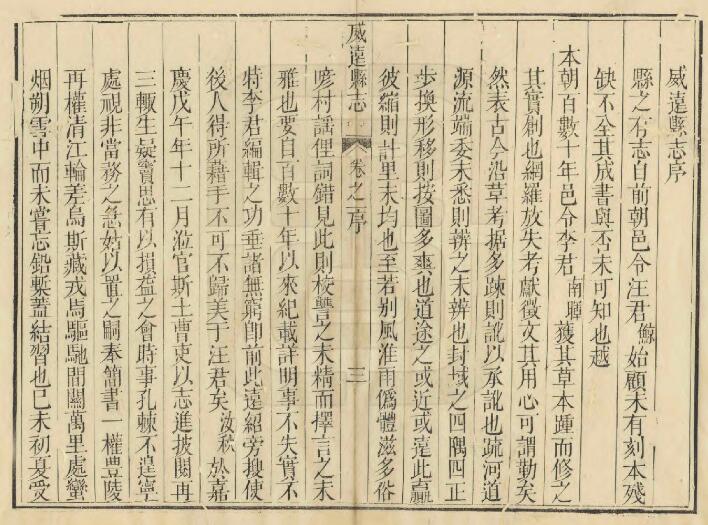 威遠縣志序
縣之有志自前朝邑令汪君鯨始顧未有刻本殘
缺不全其成書與否未可知也越
本朝百數十年邑令李君南暉獲其草本踵而修之
其實創也網羅放失考獻徵文其用心可謂勤矣
然表古今沿革考据多疎則訛以承訛也疏河道
源流端委未悉則辨之未辨也封域之四隅四正
步換形移則按圖多爽也道途之或近或遠此贏
彼縮則計里未均也至若别風淮雨僞體滋多俗
諺村謡俚詞錯見此則校讐之未精而擇言之未
雅也要自百數十年以來紀載詳明事不失實不
特李君編輯之功垂諸無窮卽前此遠紹旁搜使
後人得所藉手不可不歸美于汪君矣汝秋於嘉
慶戊午年十二月涖官斯土曹吏以志進披閱再
三輒生疑竇思有以損益之會時事孔棘不遑寧
處視非當務之急姑以置之嗣奉簡書一權豊陵
再權清江輪差烏斯藏戎馬驅馳間關萬里處蠻
烟朔雪中而未嘗忘鉛槧蓋結習也己未初夏受
威遠縣志
卷之一序
三